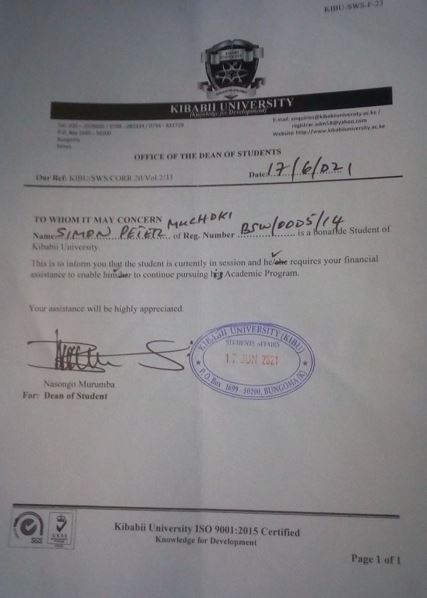 KIBU-SWS-F-23
KIBABII UNIVERSITY
(Knowledge for Development)
P.O. Box 1699 - 50200
Bungoma
Kenya
E-mail: enquiries@kibabiiuniversity.ac.ke /
Website http://www.kibabiiuniversity.ac.ke
OFFICE OF THE DEAN OF STUDENTS
Our Ref: KIBU/SWS/CORR.20/Vol.2/33
Date 17/6/021
TO WHOM IT MAY CONCERN
Name SIMON PETER MUCHOKI of Reg. Number BSW/0005/14 is a bonafide Student of
Kibabii University.
This is to inform you that the student is currently in session and he/she requires your financial
assistance to enable him/her to continue pursuing his Academic Program.
Your assistance will be highly appreciated.
KIBABII UNIVERSITY (KIBU)
STUDENTS AFFAIRS
17 JUN 2021
P.O. Box 1699 - 50200, BUNGOMA (K)
Nasongo Murumba
For: Dean of Student
SGS
UKAS
Kibabii University ISO 9001:2015 Certified
Knowledge for Development
Page 1 of 1